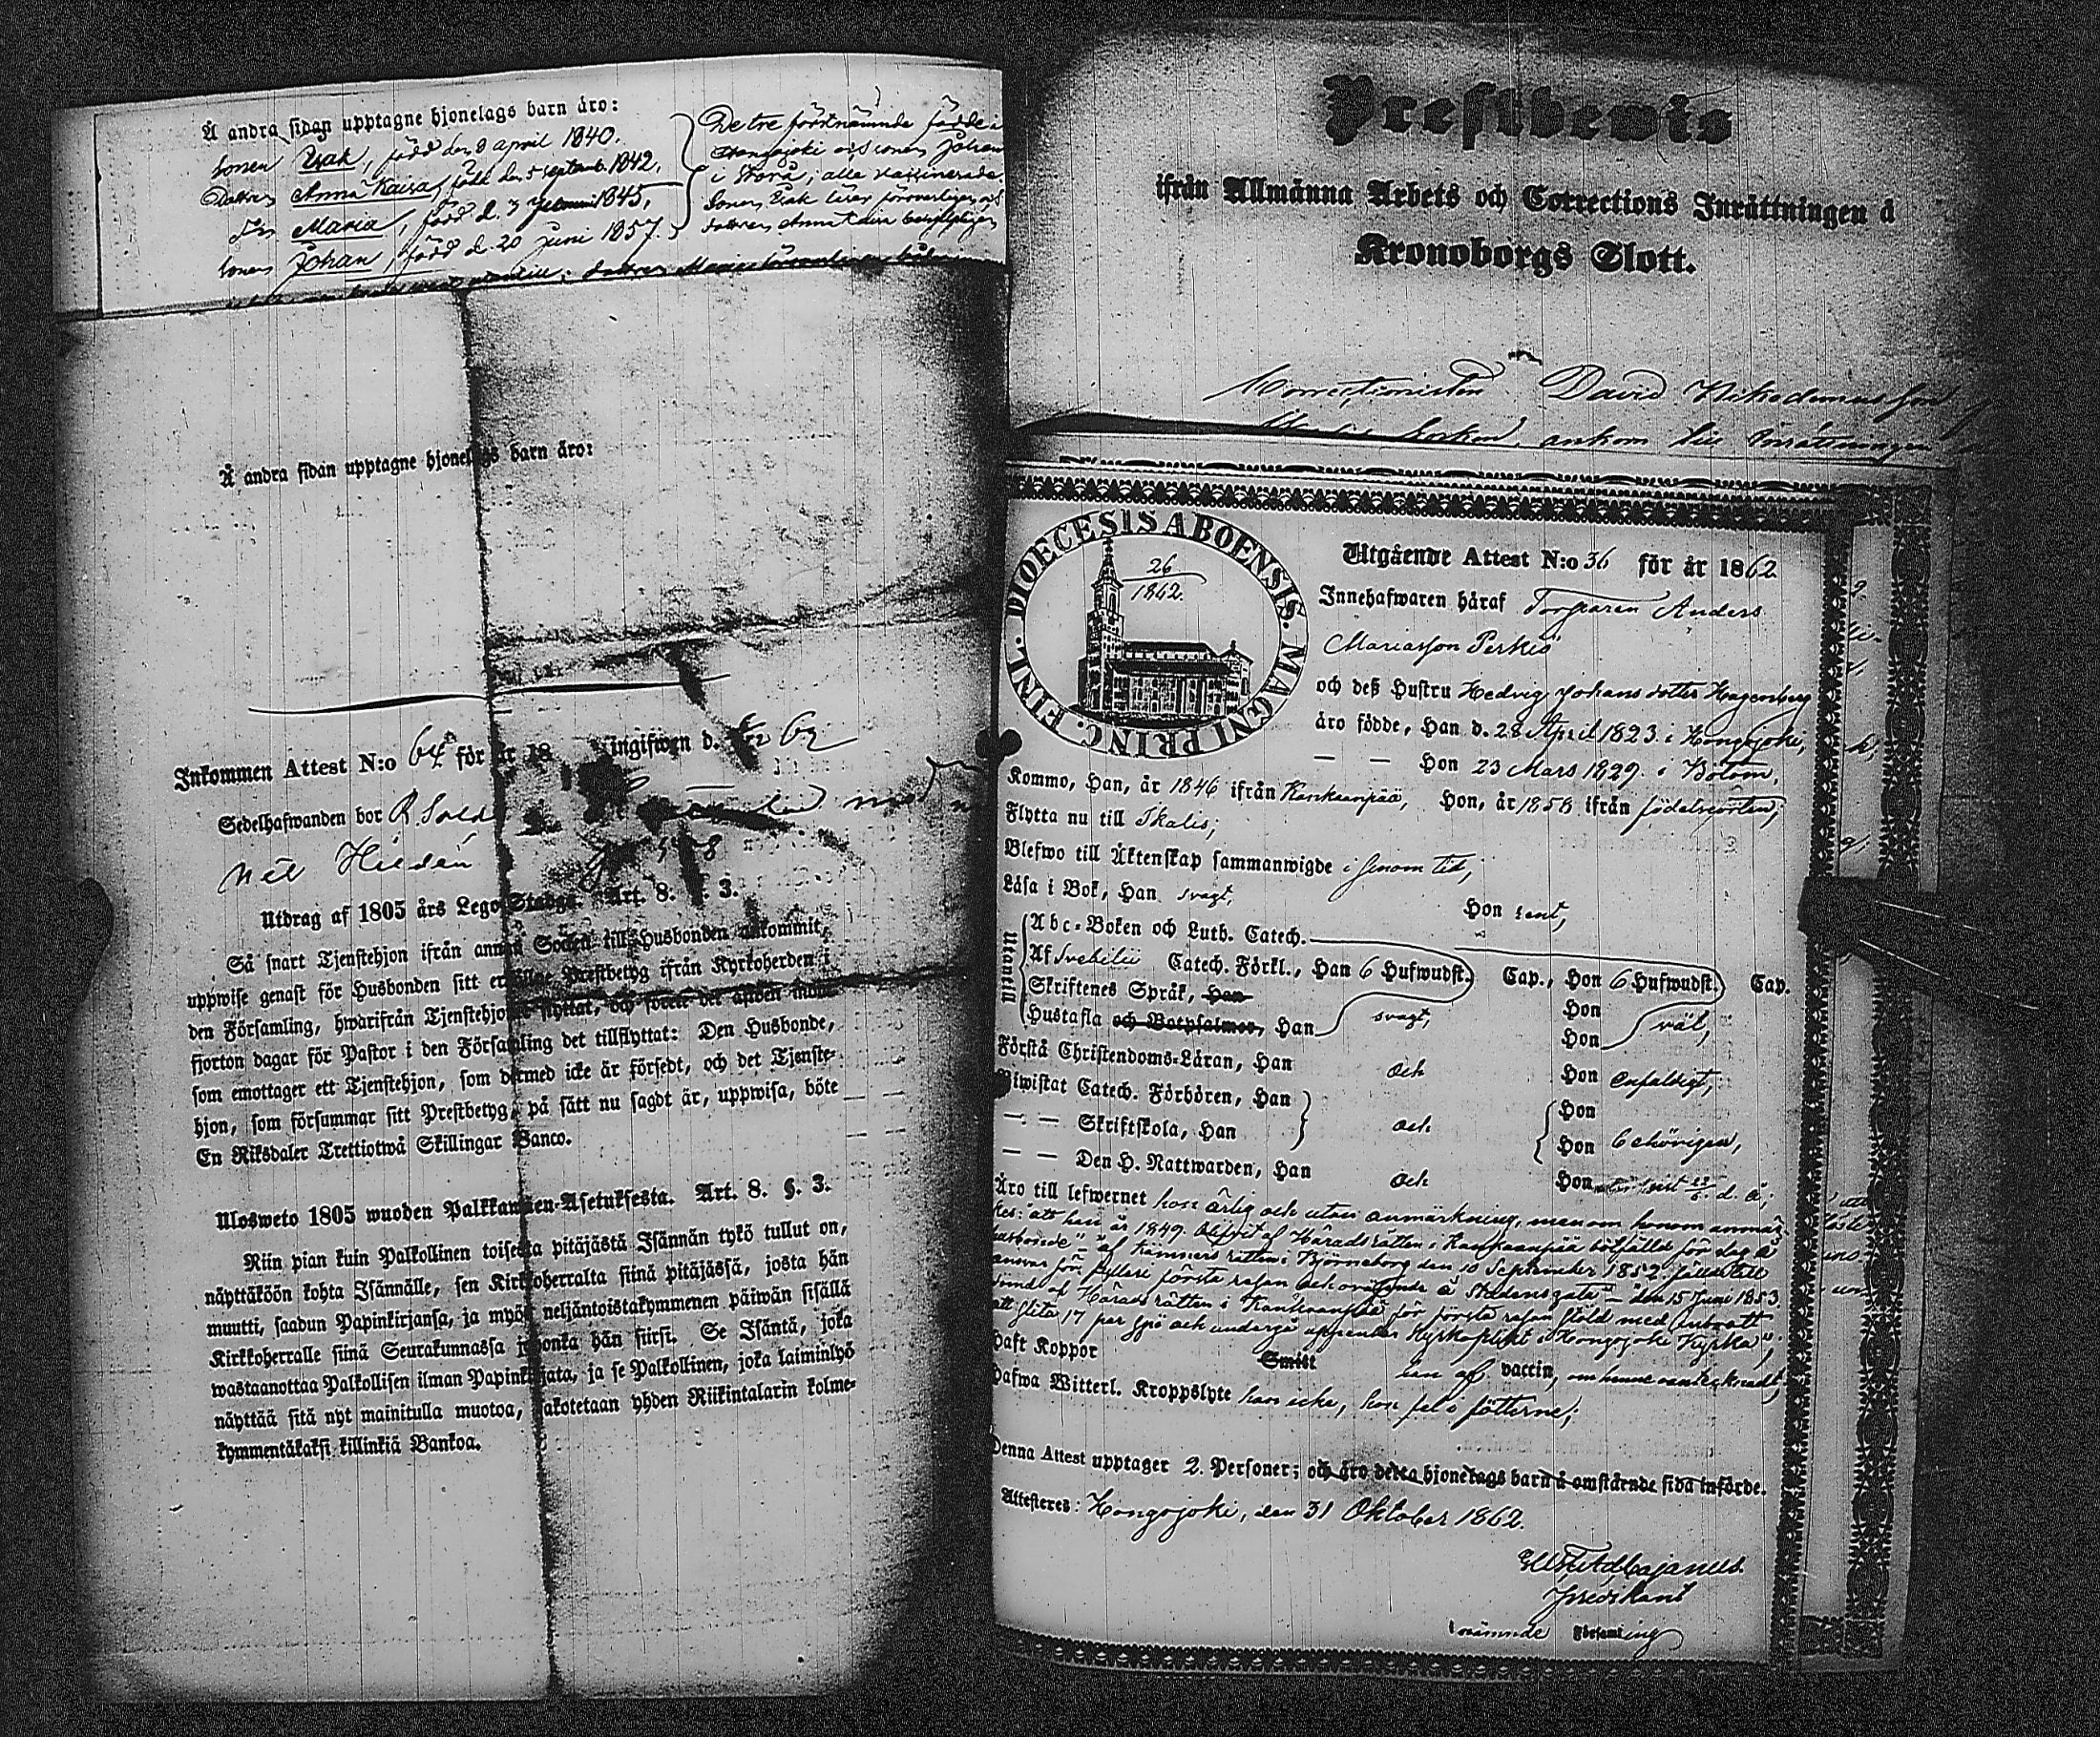 Å andra sidan upptagne hjonelags barn äro:
Sonen Isak, född den 8 april 1840.
Dottren Anna Kaisa, född den 5 septemb. 1842,
Maria, född d. 3 Februari 1845,
Sonen Johan, född d. 20 Juni 1857.
De tre förstnämnde födde i
Hongojoki och sonen Johan
i Storå; alla vaccinerade.
Sonen Isak läser försvarligen och
dottren Anna Kaisa
Å andra sidan upptagne hjonelags barn äro:
Inkommen Attest N:o 64 för år 18 ingifwen d. 62
Sedelhafwanden bor R. Sold
Nils Hildén
Utdrag af 1805 års Lego-Stadga. Art. 8. §. 3.
Så snart Tjenstehjon ifrån annan Socken till Husbonden ankommit,
uppwise genast för Husbonden sitt erhållne Prestbetyg ifrån Kyrkoherden i
den Församling, hwarifrån Tjenstehjonet flyttat, och förete det äfwen inom
fjorton dagar för Pastor i den Församling det tillflyttat: Den Husbonde,
som emottager ett Tjenstehjon, som dermed icke är försedt, och det Tjenste-
hjon, som försummar sitt Prestbetyg, på sätt nu sagdt är, uppwisa, böte
En Riksdaler Trettiotwå Skillingar Banco.
Ulosweto 1805 wuoden Palkkawäen-Asetuksesta. Art. 8. §. 3.
Niin pian kuin Palkollinen toisesta pitäjästä Isännän tykö tullut on,
näyttäköön kohta Isännälle, sen Kirkkoherralta siinä pitäjässä, josta hän
muutti, saadun Papinkirjansa, ja myös neljäntoistakymmenen päiwän sisällä
Kirkkoherralle siinä Seurakunnassa johonka hän siirsi. Se Isäntä, joka
wastaanottaa Palkollisen ilman Papinkirjata, ja se Palkollinen, joka laiminlyö
näyttää sitä nyt mainitulla muotoa, sakotetaan yhden Riikintalarin kolme-
kymmentäkaksi killinkiä Bankoa.
Prestbewis
ifrån Allmänna Arbets och Corrections Inrättningen å
Kronoborgs Slott.
Correctionisten David Nikodemusson
ankom till Inrättningen
FINL. DIOECESIS ABOENSIS. MAGNI PRINC.
26
1862.
Utgående Attest N:o 36 för år 1862
Innehafwaren häraf Torparen Anders
Mariasson Perkiö
och deß Hustru Hedvig Johans dotter Hagenberg
äro födde, Han d. 28 April 1823 i Hongojoki,
— — Hon 23 Mars 1829. i Bötom.
Kommo, Han, år 1846 ifrån Kankaanpää, Hon, år 1858 ifrån födelseorten,
Flytta nu till Skalis;
Blefwo till Äktenskap sammanwigde i senom tid,
Läsa i Bok, Han svagt, Hon rent,
Utantill
Abc-Boken och Luth. Catech.
Af Svebilii Catech. Förkl., Han 6 Hufwudst. Cap., Hon 6 Hufwudst. Cap.
Skriftenes Språk, Han svagt, Hon
Hustafla och Botpsalmer, Han Hon väl,
Förstå Christendoms-Läran, Han och Hon enfaldigt,
Biwistat Catech. Förhören, Han Hon
— — Skriftskola, Han och Hon behörigen,
— — Den H. Nattwarden, Han och Hon sist d. å;
Äro till lefwernet hon ärlig och utan anmärkning, men om honom anmär-
kes: "att han år 1849. blifvit af Häradsrätten i Kankaanpää bötfälld för slag å
af Kämners rätten i Björneborg den 10 September 1852. fälld till
ansvar för fylleri första resan och oväsende å Stadens gata" — den 15 Juni 1853.
dömd af Häradsrätten i Kankaanpää för första resan stöld med inbrott
att slita 17 par spö och undergå uppenbar kyrkoplikt i Hongojoki Kyrka";
Haft Koppor Smitt han af vaccin, om henne oantecknadt,
Hafwa Witterl. Kroppslyte han icke, hon fel i fötterne;
Denna Attest upptager 2. Personer; och äro detta hjonelags barn å omstående sida införde.
Attesteres: Hongojoki, den 31 Oktober 1862.
Cajanus.
Predikant
i nämnde Församling